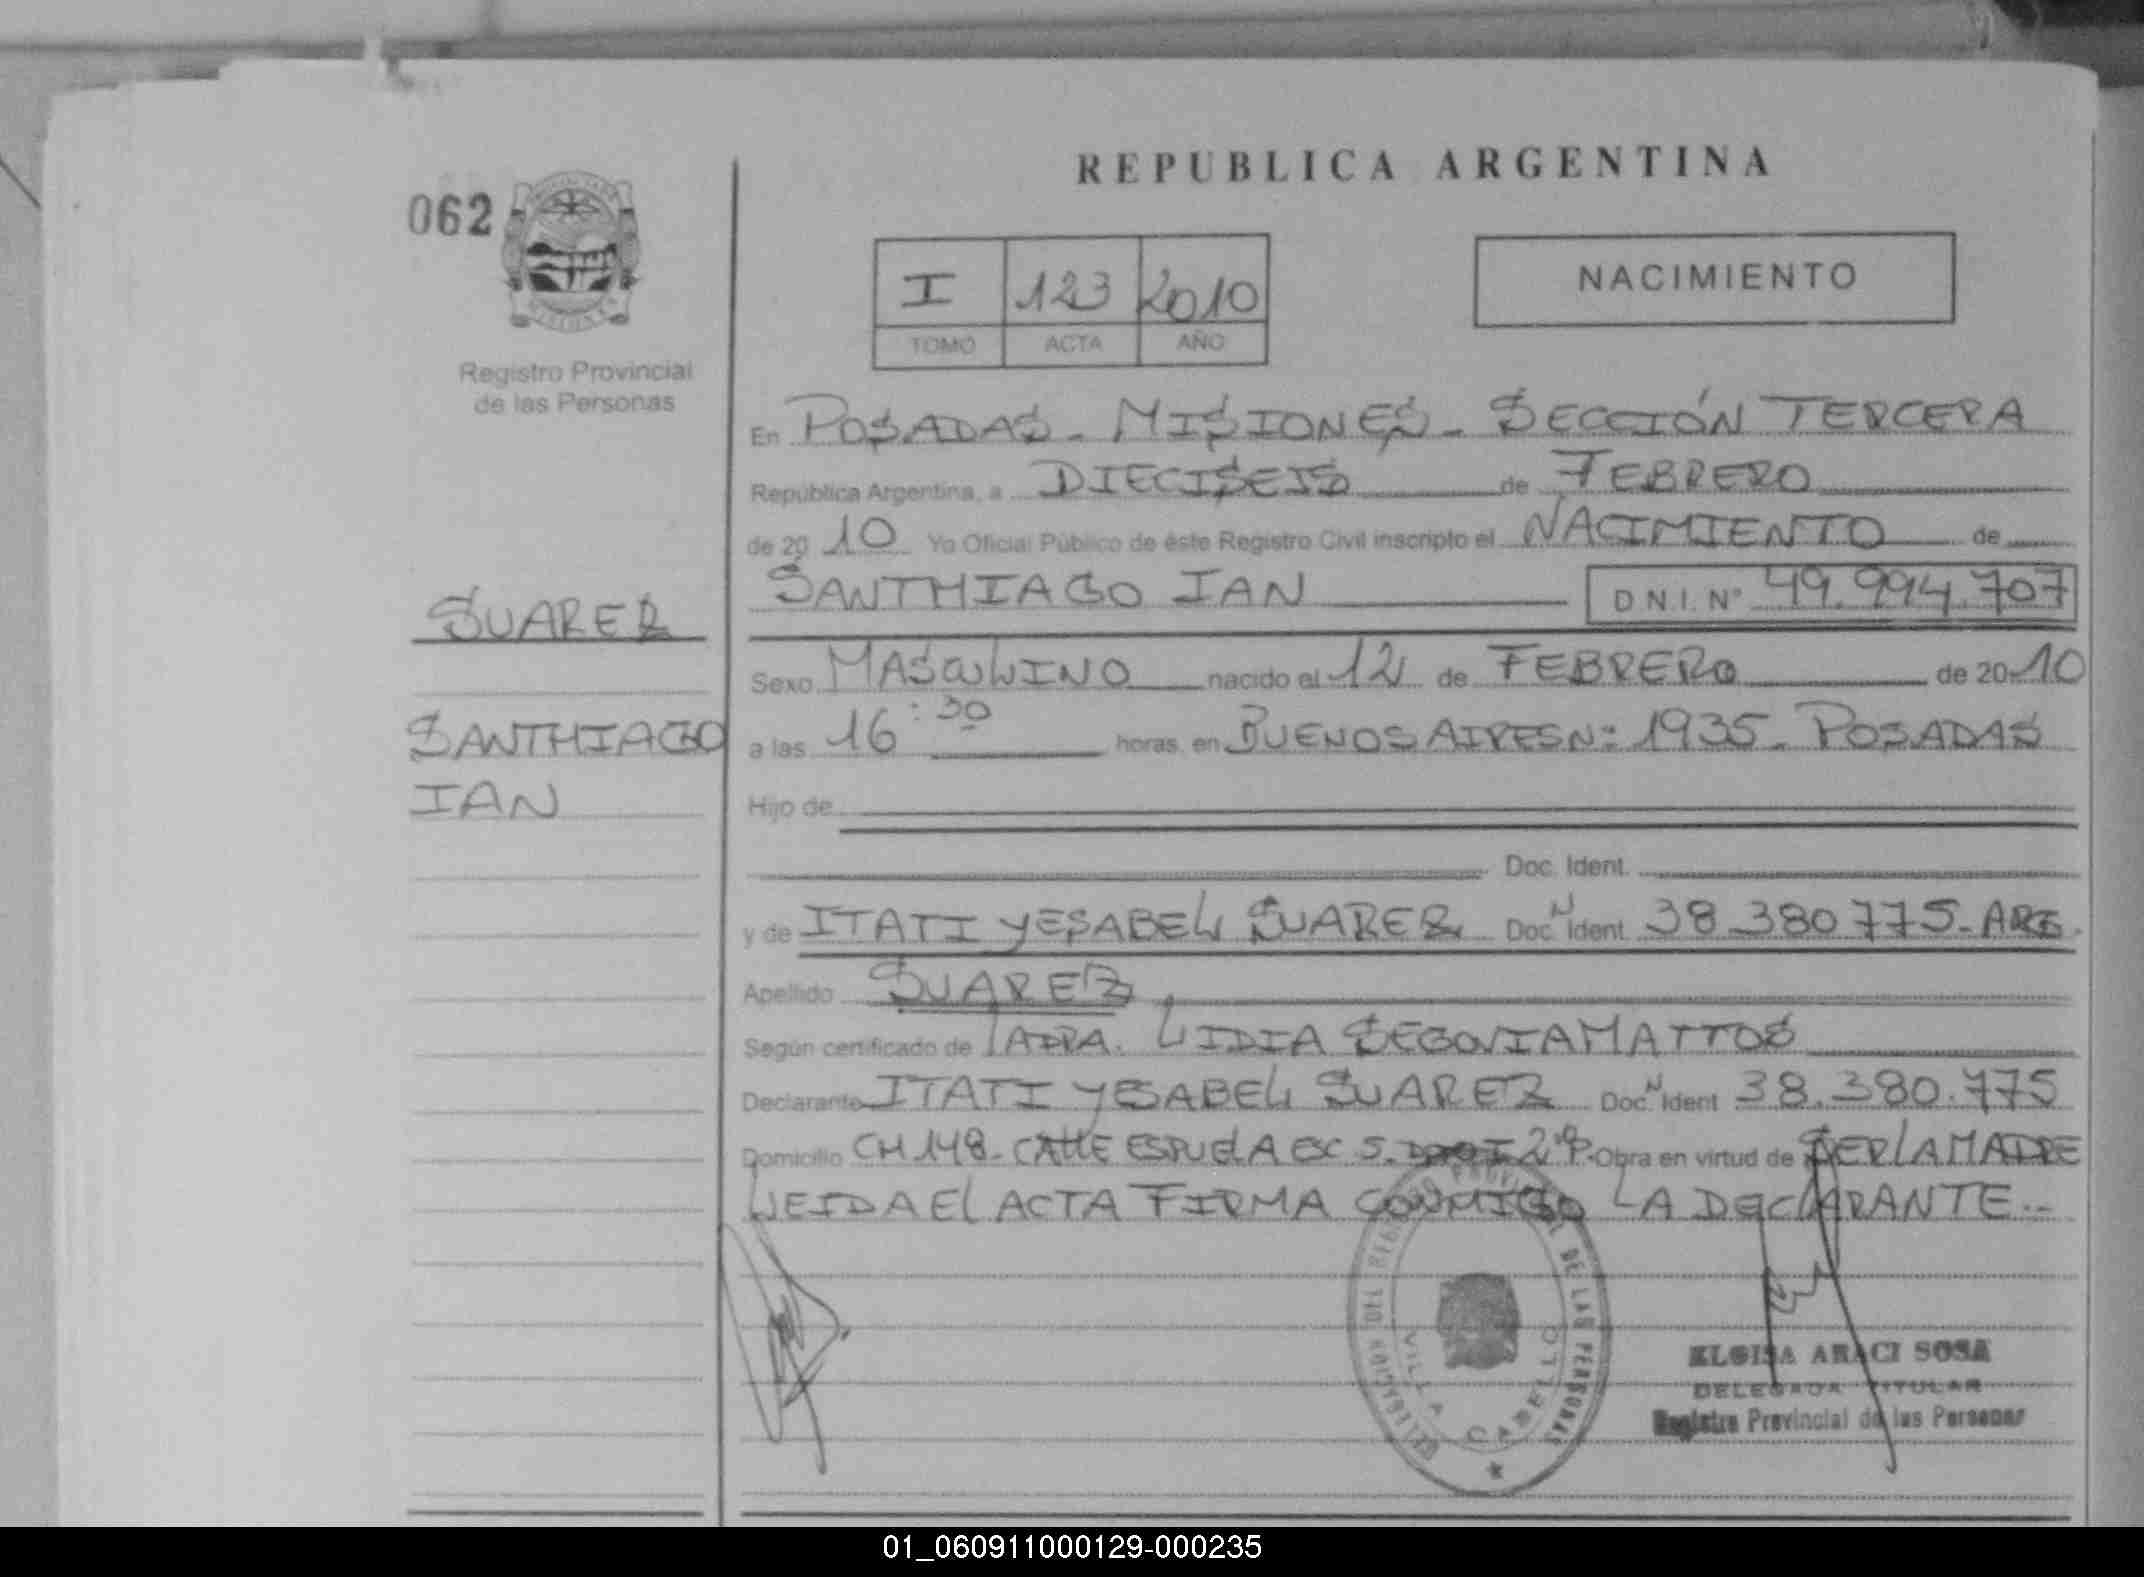 REPUBLICA ARGENTINA
062
I 123 2010
TOMO ACTA AÑO
NACIMIENTO
Registro Provincial
de las Personas
En POSADAS - MISIONES - SECCIÓN TERCERA
República Argentina, a DIECISEIS de FEBRERO
de 2010 Yo Oficial Público de éste Registro Civil inscripto el NACIMIENTO de
SANTHIAGO IAN D.N.I. Nº 49.994.707
SUAREZ
Sexo MASCULINO nacido el 12 de FEBRERO de 2010
SANTHIAGO
IAN
a las 16:30 horas, en BUENOS AIRES Nº 1935 - POSADAS
Hijo de
Doc. Ident.
y de ITATI YESABEL SUAREZ Doc. N Ident 38.380.775 - ARG.
Apellido SUAREZ
Según certificado de LA DRA. LIDIA SEGOVIA MATTOS
Declarante ITATI YESABEL SUAREZ Doc. N Ident 38.380.775
Domicilio CH 148 - CALLE ESPUELA ESC 5 - 2º P. Obra en virtud de SER LA MADRE
LEIDA EL ACTA FIRMA CONMIGO LA DECLARANTE.-
DELEGACION DEL REGISTRO PROVINCIAL DE LAS PERSONAS
VILLA CABELLO
ELOISA ARACI SOSA
DELEGADA TITULAR
Registro Provincial de las Personas
01_060911000129-000235